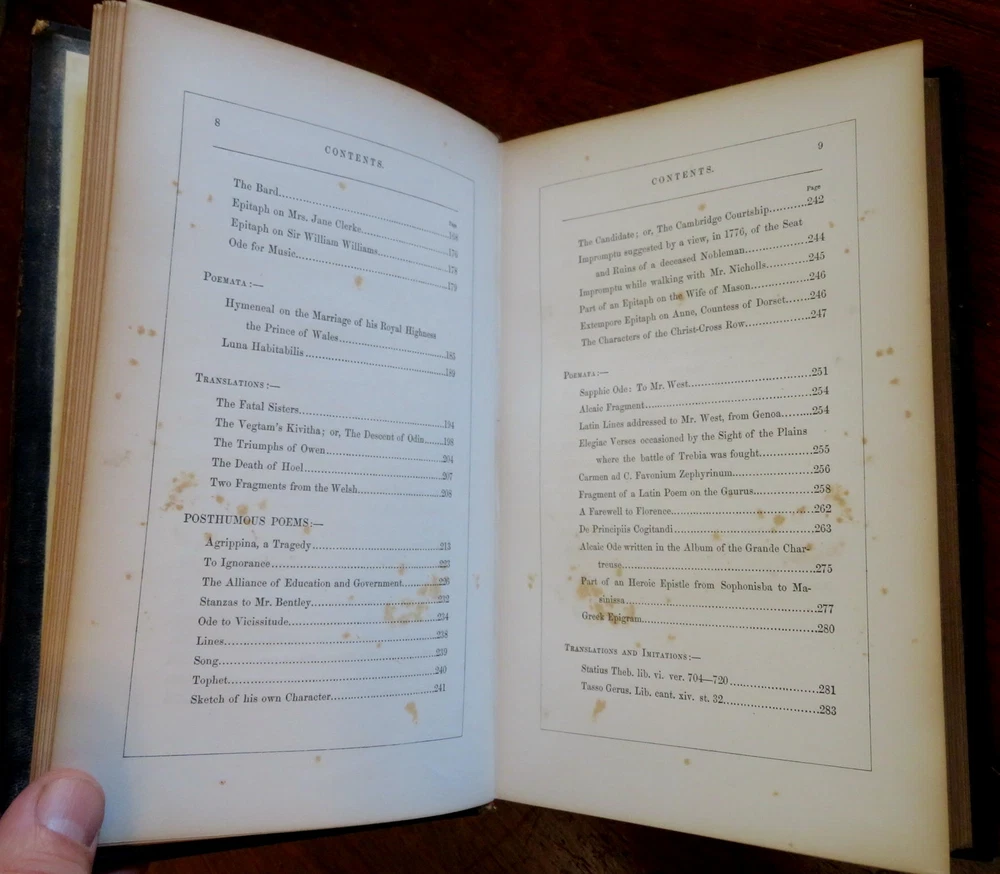 8
CONTENTS.
Page
The Bard..........168
Epitaph on Mrs. Jane Clerke..........176
Epitaph on Sir William Williams..........178
Ode for Music..........179
POEMATA:—
Hymeneal on the Marriage of his Royal Highness
the Prince of Wales..........185
Luna Habitabilis..........189
TRANSLATIONS:—
The Fatal Sisters..........194
The Vegtam's Kivitha; or, The Descent of Odin..........198
The Triumphs of Owen..........204
The Death of Hoel..........207
Two Fragments from the Welsh..........208
POSTHUMOUS POEMS:—
Agrippina, a Tragedy..........213
To Ignorance..........223
The Alliance of Education and Government..........226
Stanzas to Mr. Bentley..........232
Ode to Vicissitude..........234
Lines..........238
Song..........239
Tophet..........240
Sketch of his own Character..........241
9
CONTENTS.
Page
The Candidate; or, The Cambridge Courtship..........242
Impromptu suggested by a view, in 1776, of the Seat
and Ruins of a deceased Nobleman..........244
Impromptu while walking with Mr. Nicholls..........245
Part of an Epitaph on the Wife of Mason..........246
Extempore Epitaph on Anne, Countess of Dorset..........246
The Characters of the Christ-Cross Row..........247
POEMATA:—
Sapphic Ode: To Mr. West..........251
Alcaic Fragment..........254
Latin Lines addressed to Mr. West, from Genoa..........254
Elegiac Verses occasioned by the Sight of the Plains
where the battle of Trebia was fought..........255
Carmen ad C. Favonium Zephyrinum..........256
Fragment of a Latin Poem on the Gaurus..........258
A Farewell to Florence..........262
De Principiis Cogitandi..........263
Alcaic Ode written in the Album of the Grande Char-
treuse..........275
Part of an Heroic Epistle from Sophonisba to Ma-
sinissa..........277
Greek Epigram..........280
TRANSLATIONS AND IMITATIONS:—
Statius Theb. lib. vi. ver. 704—720..........281
Tasso Gerus. Lib. cant. xiv. st. 32..........283